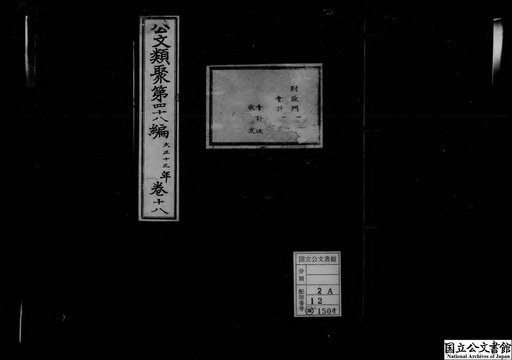 公文類聚第四十八編 大正十三年 巻十八
財政門一
會計一
會計法
收支
国立公文書館
分類
配架番号
2A
12
類1504
国立公文書館
National Archives of Japan